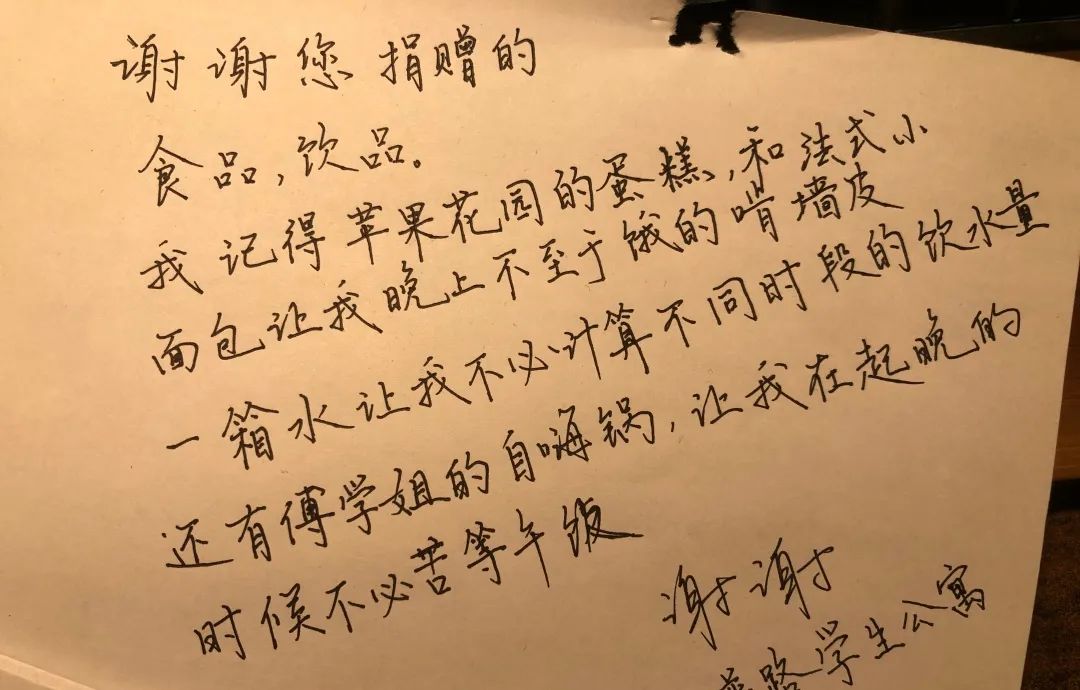 谢谢您捐赠的
食品,饮品。
我记得苹果花园的蛋糕,和法式小
面包让我晚上不至于饿的啃墙皮
一箱水让我不必计算不同时段的饮水量
还有傅学姐的自嗨锅,让我在起晚的
时候不必苦等午饭
谢谢
路学生公寓